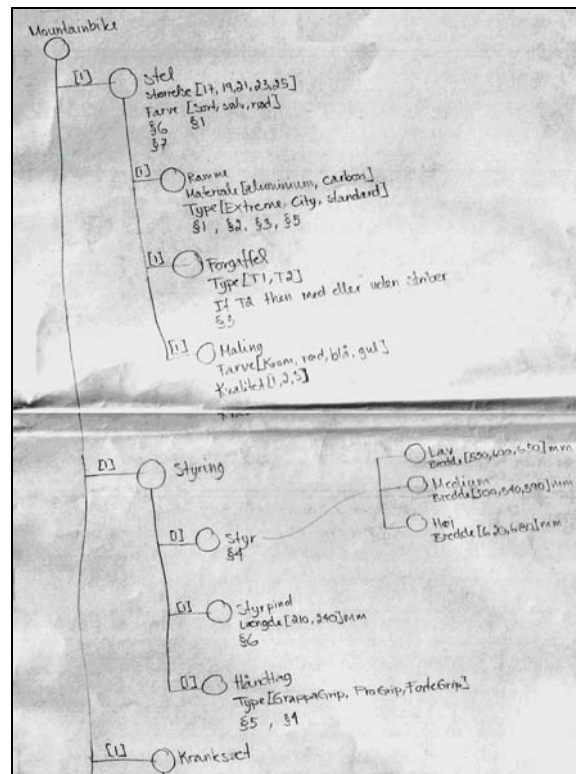 Mountainbike
[1] Stel
Størrelse [17, 19, 21, 23, 25]
Farve [Sort, sølv, rød]
§6 §1
§7
[1] Ramme
Materiale [aluminium, carbon]
Type [Extreme, City, standard]
§1, §2, §3, §5
[1] Forgaffel
Type [T1, T2]
If T2 then med eller uden striber
§3
[1] Maling
Farve [Krom, rød, blå, gul]
Kvalitet [1, 2, 3]
[1] Styring
Lav
Bredde [550, 600, 650] mm
Medium
Bredde [500, 540, 590] mm
Høj
Bredde [620, 680] mm
[1] Styr
§4
[1] Styrpind
Længde [210, 240] mm
§6
[1] Håndtag
Type [GrappaGrip, ProGrip, ForteGrip]
§5, §4
[1] Kranksæt